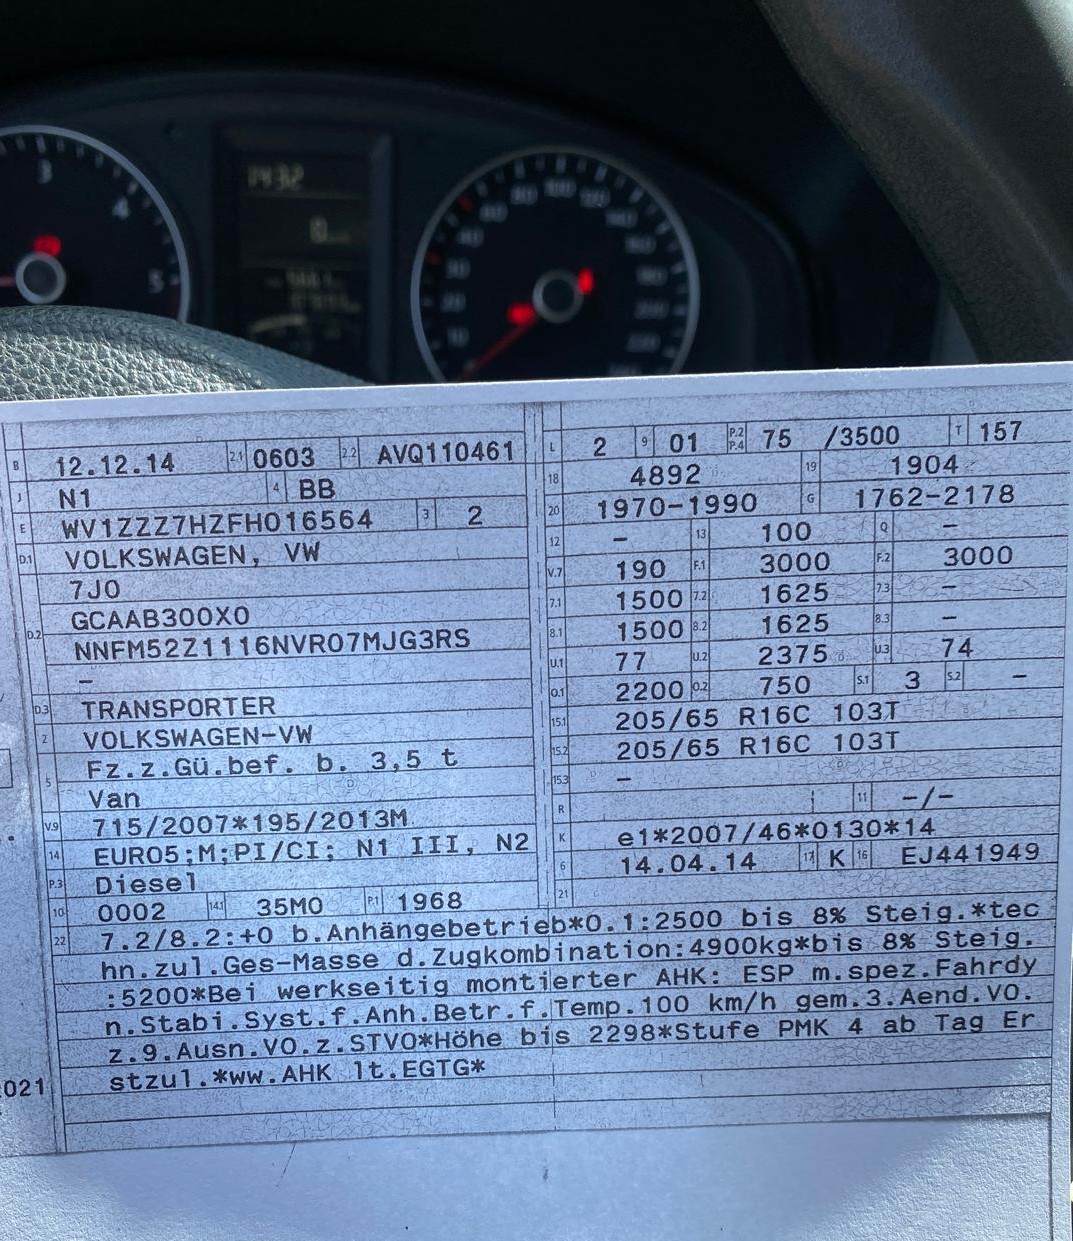 3
4
5
1432
0
10
20
30
40
60
80
100
120
140
160
180
200
220
B 12.12.14 2.1 0603 2.2 AVQ110461
J N1 4 BB
E WV1ZZZ7HZFH016564 3 2
D.1 VOLKSWAGEN, VW
7J0
D.2 GCAAB300X0
NNFM52Z1116NVR07MJG3RS
–
D.3 TRANSPORTER
2 VOLKSWAGEN-VW
5 Fz.z.Gü.bef. b. 3,5 t
Van
V.9 715/2007*195/2013M
14 EURO5;M;PI/CI; N1 III, N2
P.3 Diesel
10 0002 14.1 35M0 P.1 1968
L 2 9 01 P.2 P.4 75 /3500 T 157
18 4892 19 1904
20 1970-1990 G 1762-2178
12 – 13 100 Q –
V.7 190 F.1 3000 F.2 3000
7.1 1500 7.2 1625 7.3 –
8.1 1500 8.2 1625 8.3 –
U.1 77 U.2 2375 U.3 74
O.1 2200 O.2 750 S.1 3 S.2 –
15.1 205/65 R16C 103T
15.2 205/65 R16C 103T
15.3 –
R 11 –/–
K e1*2007/46*0130*14
6 14.04.14 17 K 16 EJ441949
21
22 7.2/8.2:+0 b.Anhängebetrieb*0.1:2500 bis 8% Steig.*tec
hn.zul.Ges-Masse d.Zugkombination:4900kg*bis 8% Steig.
:5200*Bei werkseitig montierter AHK: ESP m.spez.Fahrdy
n.Stabi.Syst.f.Anh.Betr.f.Temp.100 km/h gem.3.Aend.VO.
z.9.Ausn.VO.z.STVO*Höhe bis 2298*Stufe PMK 4 ab Tag Er
stzul.*ww.AHK lt.EGTG*
021